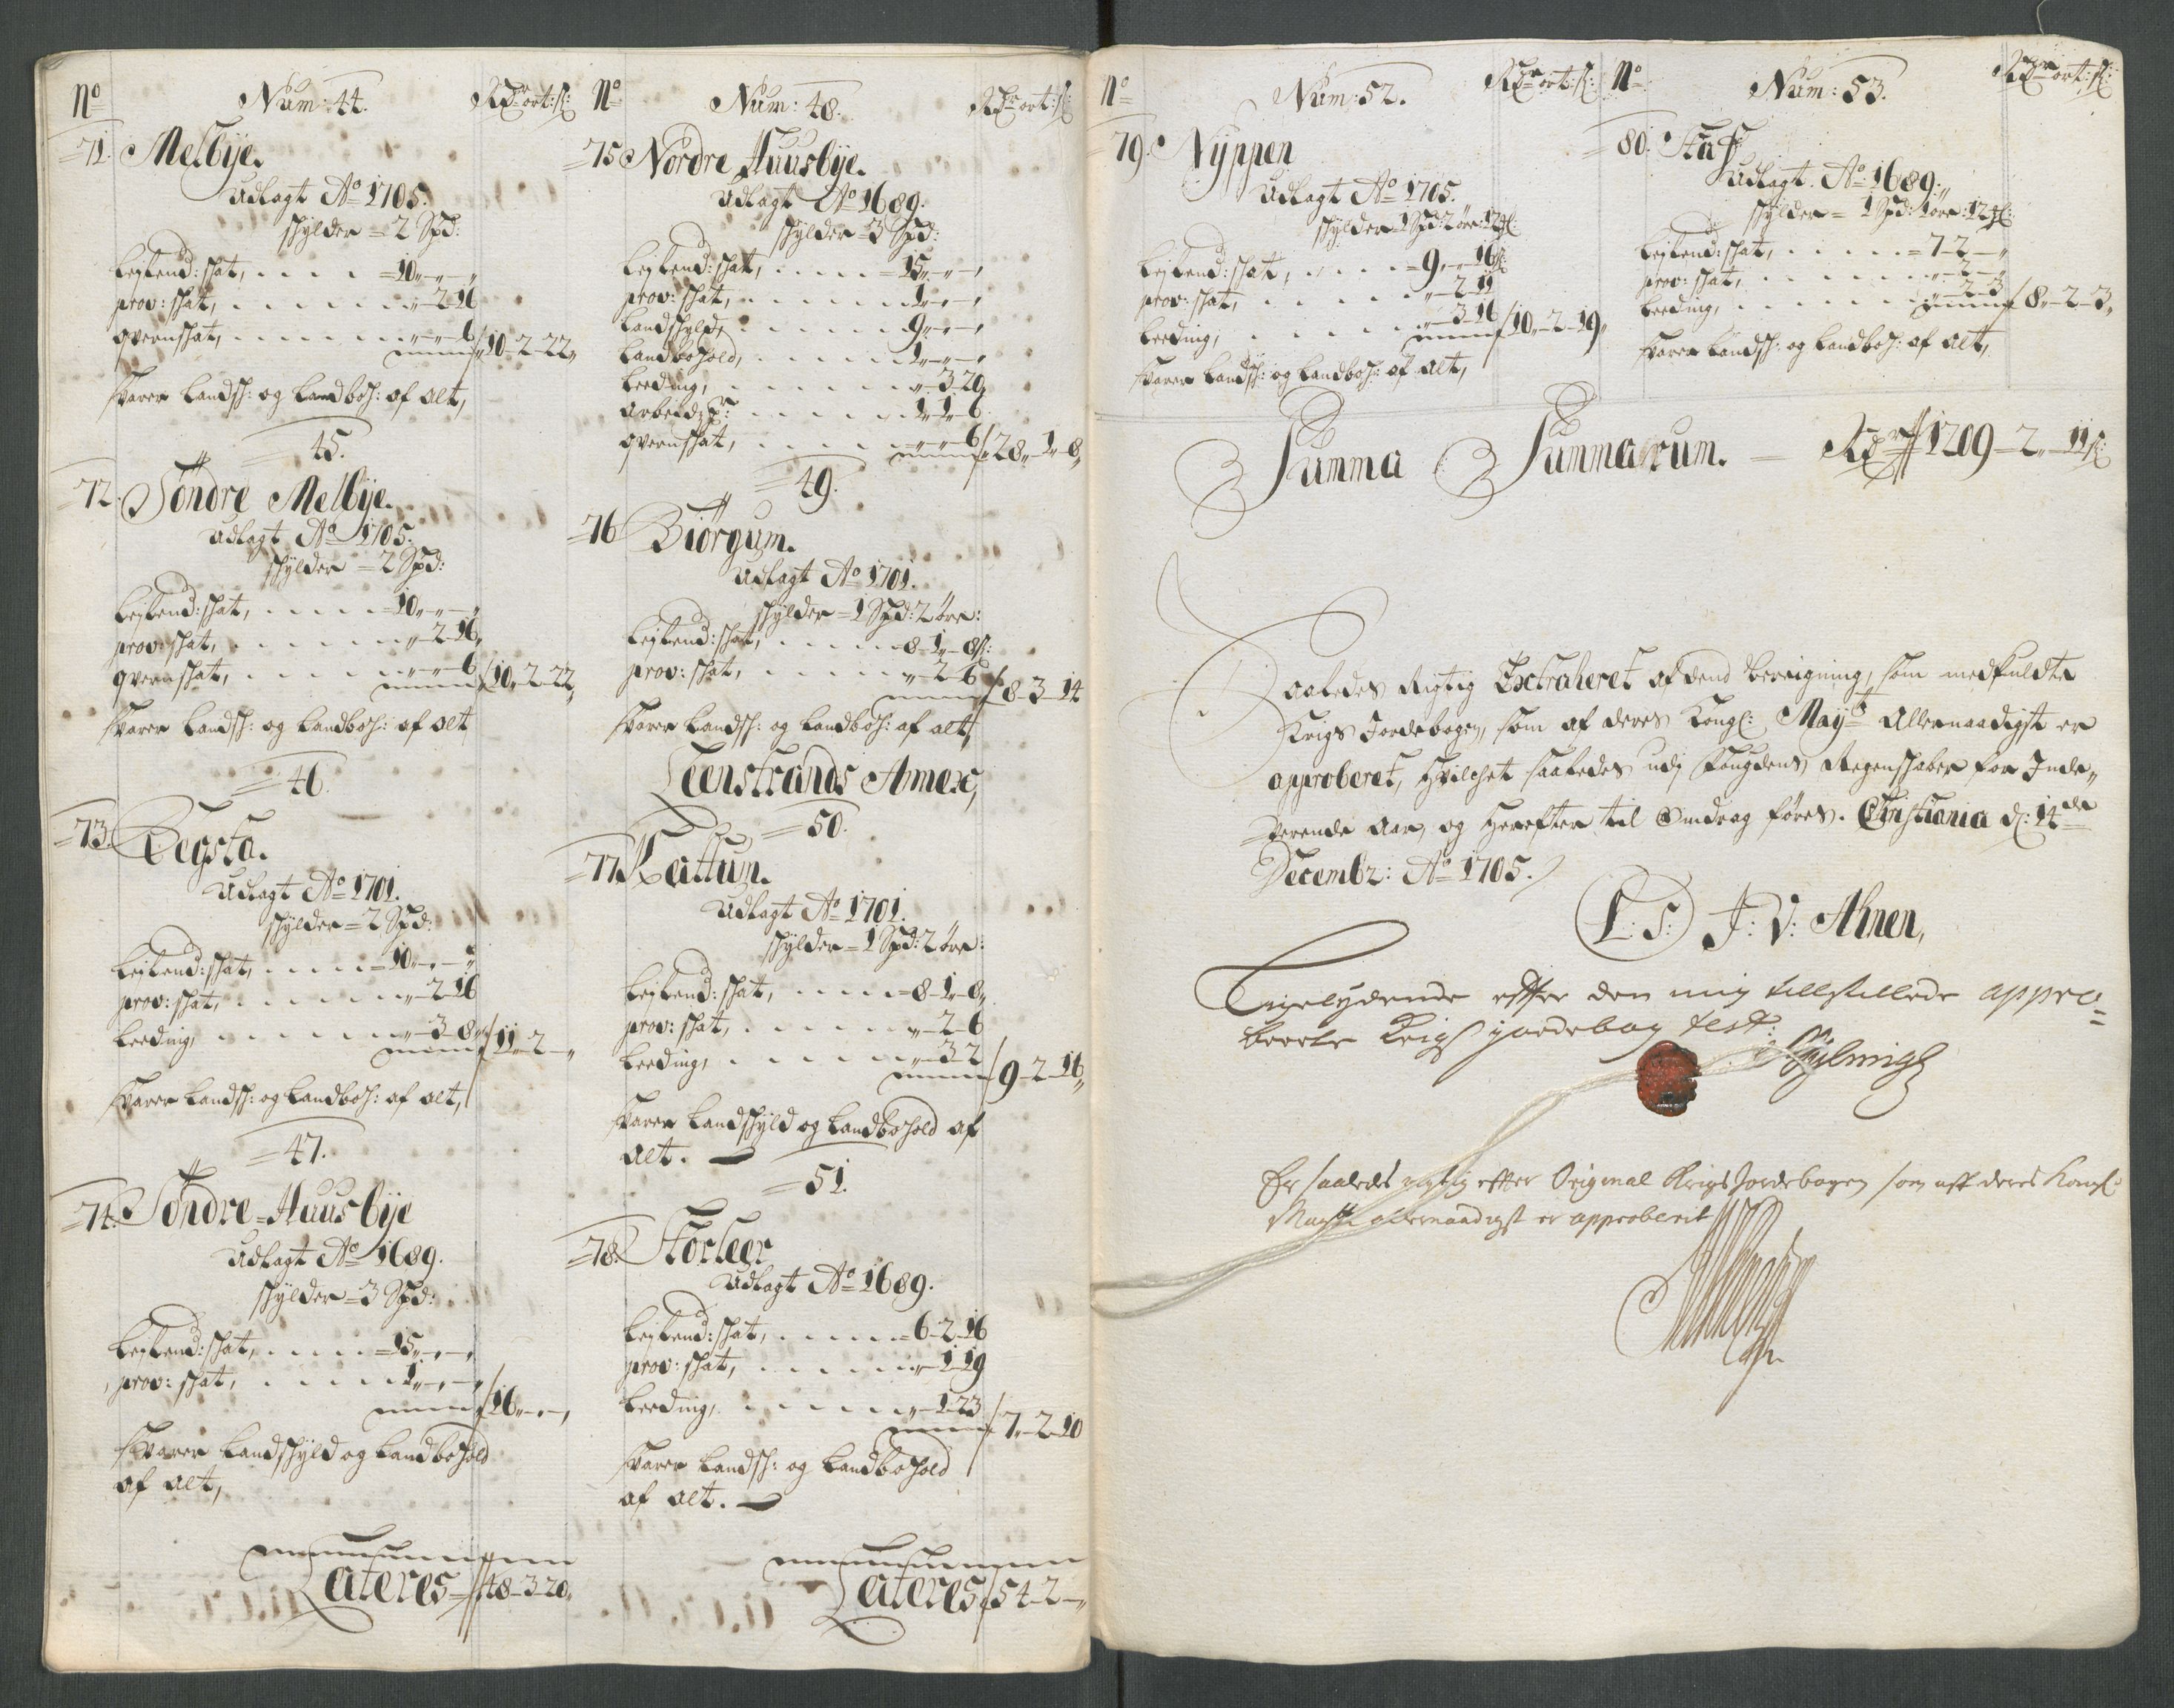 No Num: 44. Rdr ort: s:
71. Melbÿe.
Udlagt Ao 1705.
skÿlder = 2 Spd:
Leÿlend: skat, . . . . = 10„ — „ — „
prov: skat, . . . . . . „ — 2 — 16
qvernskat, . . . . . . „ — „ — 6 / 10 — 2 — 22„
svarer Landsk: og Landboh: af alt,
45.
72. Söndre Melbÿe.
Udlagt Ao 1705.
skÿlder = 2 Spd:
Leÿlend: skat, . . . . = 10„ — „ — „
prov: skat, . . . . . „ — 2 — 16„
qvernskat, . . . . . „ — „ — 6 / 10„ — 2 — 22„
svarer Landsk: og Landboh: af alt
46.
73. Begsta.
Udlagt Ao 1701.
skÿlder = 2 Spd:
Leÿlend: skat, . . . . = 10„ — „ — „
prov: skat, . . . . . „ — 2 — 16
Leeding, . . . . . . „ — 3 — 8„ / 11„ — 2 — „
svarer Landsk: og Landboh: af alt,
47.
74. Söndre = Huusbÿe
Udlagt Ao 1689.
skÿlder = 3 Spd:
Leÿlend: skat, . . . . = 15„ — „ — „
prov: skat, . . . . . 1„ — „ — „ / 16„ — „ — „
svarer Landskÿld og Landbohold
af alt,
Lateres = 48 — 3 — 20„
No Num: 48. Rdr ort: s:
75 Nordre Huusbÿe.
Udlagt Ao 1689.
skÿlder = 3 Spd:
Leÿlend: skat, . . . . = 15„ — „ — „
prov: skat, . . . . . . 1„ — „ — „
Landskÿld, . . . . . . 9„ — „ — „
Landbohold, . . . . . 1„ — „ — „
Leeding, . . . . . . „ — 3 — 20„
arbeidzp: . . . . . . 1„ — 1„ — 6
qvernskat, . . . . . . „ — „ — 6 / 28„ — 1„ — 8„
49.
76 Biörgum.
Udlagt Ao 1701.
skÿlder = 1 Spd: 2 öre:
Leÿlend: skat, . . . . = 8 — 1„ — 8s:
prov: skat, . . . . . „ — 2 — 6 / 8 — 3 — 14
svarer Landsk: og Landboh: af alt,
Leenstrands Annex,
50.
77. Kattum.
Udlagt Ao 1701.
skÿlder = 1 Spd: 2 öre:
Leÿlend: skat, . . . . = 8 — 1„ — 8„
prov: skat, . . . . . „ — 2 — 6
Leeding, . . . . . . „ — 3 2 / 9 — 2 — 16„
svarer Landskÿld og Landbohold af
alt.
51.
78. Storleer
Udlagt Ao 1689.
Leÿlend: skat, . . . . = 6 — 2 — 16
prov: skat, . . . . . „ — 1 — 19
Leeding, . . . . . . „ — 1 — 23 / 7„ — 2 — 10
svarer Landsk: og Landbohold
af alt.
Lateres 54 — 2 — „
No Num: 52. Rdr ort: s:
79. Nÿppen
Udlagt Ao 1705.
skÿlder = 1 Spd: 2 öre: 12 gl:
Leÿlend: skat, . . . . = 9„ — „ — 16s:
prov: skat, . . . . . „ — 2 — 11
Leeding, . . . . . . „ — 3 — 16 / 10„ — 2 — 19„
svarer Landsk: og Landboh: af alt,
No Num: 53. Rdr ort: s:
80. Stafs
Udlagt Ao 1689„
skÿlder = 1 Spd: 1 öre: 12 gl:
Leÿlend: skat, . . . . = 7 — 2 — „
prov: skat, . . . . . „ — 2 — „
Leeding, . . . . . . „ — 2 — 3 / 8„ — 2 — 3„
svarer Landsk: og Landboh: af alt,
Summa Summarum. — Rdr 1209 — 2„ — 11s:
Saaledes Rigtig Extraheret af dend Bereigning, som medfuldte
Krigs Jordebogen, som af deres Kongl: Mayts Allernaadigst er
approberet, Hvilchet saaledes udj Fougdens Regenskaber for Inde„
verende Aar, og Herefter til Omdrag föres. Christiania d: 14de
Decembr: Ao 1705.
L: S: J: V: Ahnen,
Ligelydende effter den mig tillstillede appro=
berete Krigs jordebog test:
Er saaledes rigtig effter Original Krigs Jordebogen som aff deres Kongl:
Maytt allernaadigst er approberit